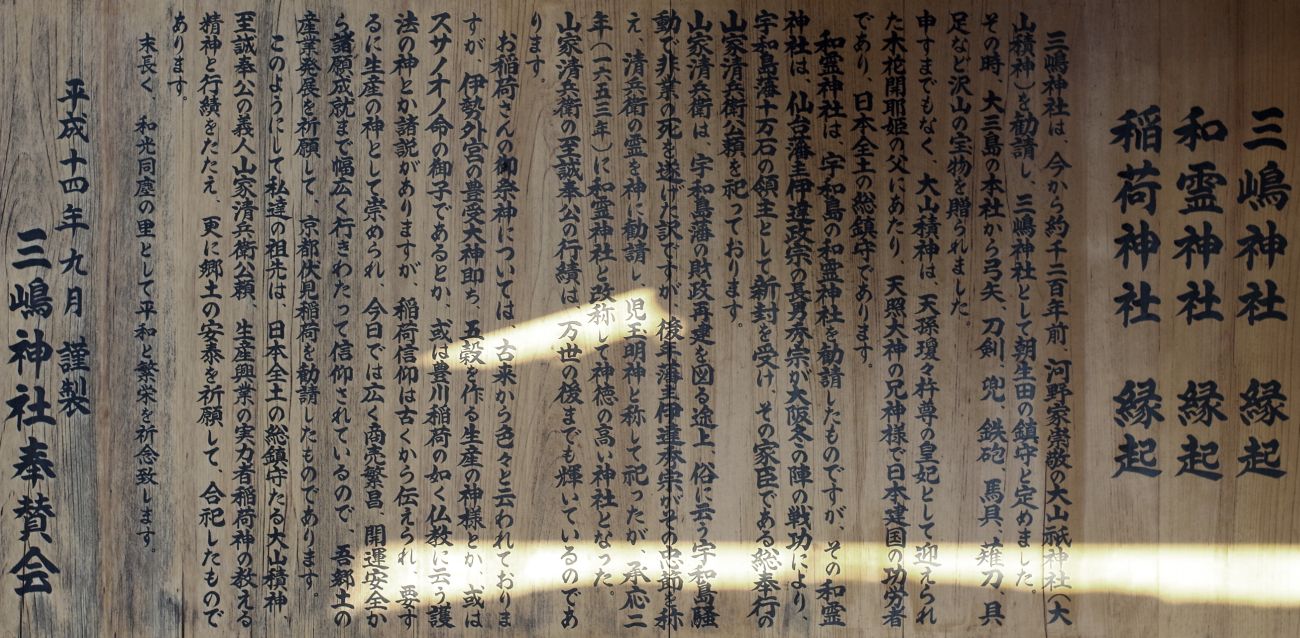 三嶋神社 縁起
和霊神社 縁起
稲荷神社 縁起
三嶋神社は、今から約千二百年前、河野家崇敬の大山祇神社(大
山積神)を勧請し、三嶋神社として朝生田の鎮守と定めました。
その時、大三島の本社から弓矢、刀剣、兜、鉄砲、馬具、薙刀、具
足など沢山の宝物を贈られました。
申すまでもなく、大山積神は、天孫瓊々杵尊の皇妃として迎えられ
た木花開耶姫の父にあたり、天照大神の兄神様で日本建国の功労者
であり、日本全土の総鎮守であります。
和霊神社は、宇和島の和霊神社を勧請したものですが、その和霊
神社は、仙台藩主伊達政宗の長男秀宗が大阪冬の陣の戦功により、
宇和島藩十万石の領主として新封を受け、その家臣である総奉行の
山家清兵衛公頼を祀っております。
山家清兵衛は、宇和島藩の財政再建を図る途上、俗に云う宇和島騒
動で非業の死を遂げた訳ですが、後年藩主伊達秀宗がその忠節を称
え、清兵衛の霊を神に勧請し、児玉明神と称して祀ったが、承応二
年(一六五三年)に和霊神社と改称して神徳の高い神社となった。
山家清兵衛の至誠奉公の行績は、万世の後までも輝いているのであ
ります。
お稲荷さんの御祭神については、古来から色々と云われておりま
すが、伊勢外宮の豊受大神即ち、五穀を作る生産の神様とか、或は
スサノオノ命の御子であるとか、或は豊川稲荷の如く仏教に云う護
法の神とか諸説がありますが、稲荷信仰は古くから伝えられ、要す
るに生産の神として崇められ、今日では広く商売繁昌、開運安全か
ら諸願成就まで幅広く行きわたって信仰されているので、吾郷土の
産業発展を祈願して、京都伏見稲荷を勧請したものであります。
このようにして私達の祖先は、日本全土の総鎮守たる大山積神、
至誠奉公の義人山家清兵衛公頼、生産興業の実力者稲荷神の教える
精神と行績をたたえ、更に郷土の安泰を祈願して、合祀したもので
あります。
末長く、和光同塵の里として平和と繁栄を祈念致します。
平成十四年九月 謹製
三嶋神社奉賛会